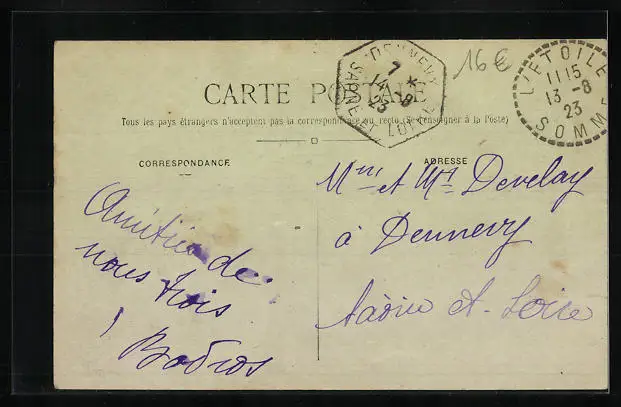 16€
DENNEVY
7 *
14 -8
23
SAÔNE ET LOIRE
L'ETOILE
11 15
13 -8
23
SOMME
CARTE POSTALE
Tous les pays étrangers n'acceptent pas la correspondance au recto (Se renseigner à la Poste)
CORRESPONDANCE
ADRESSE
Amitiés de
nous trois
Mr et Me Develay
à Dennevy
Saône et Loire